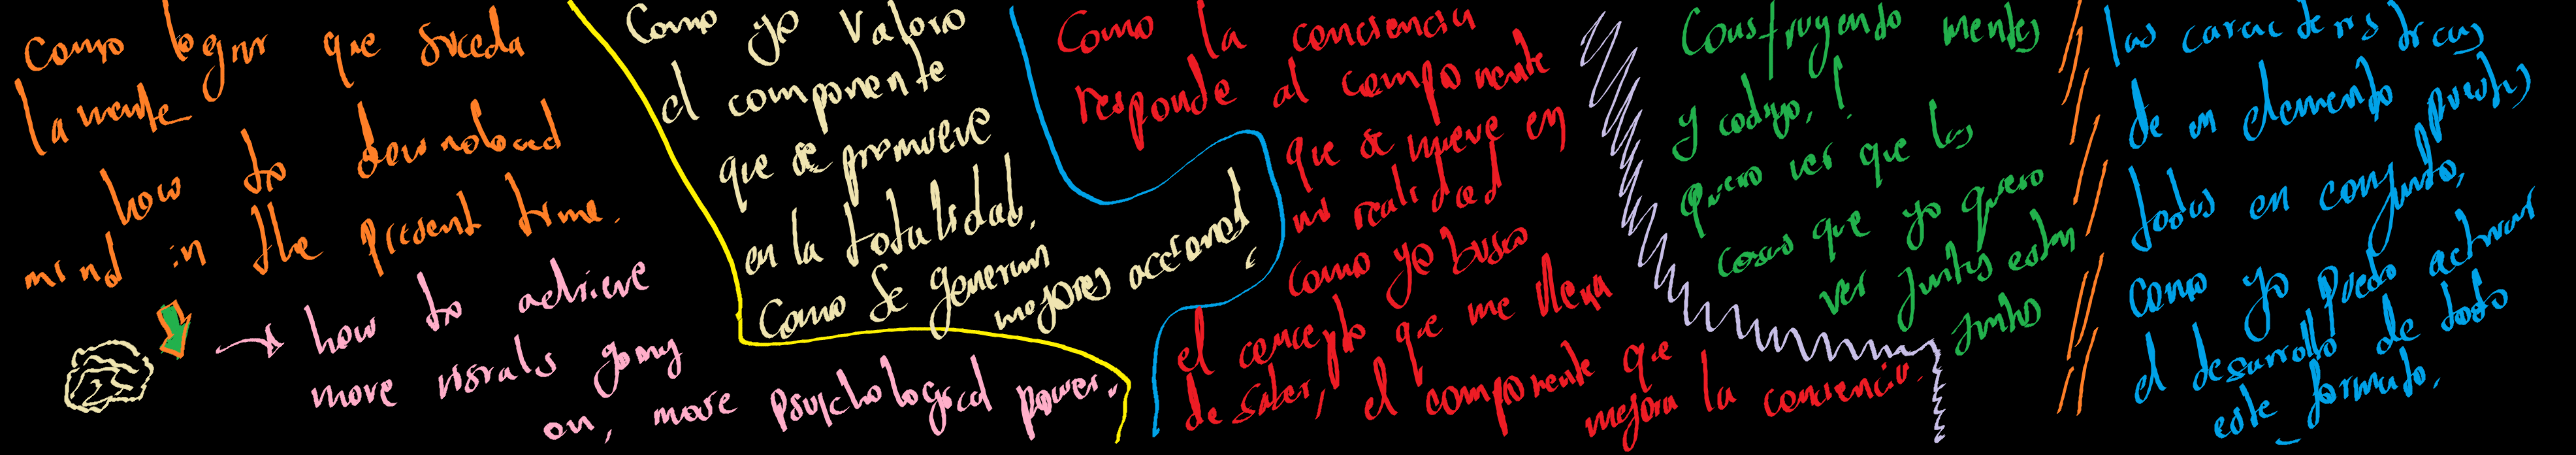 Como lograr que suceda
la mente
how to download
mind in the present time.
how to achieve
more visuals going
on, more psychological power.
Como yo valoro
el componente
que se promueve
en la totalidad.
Como se generan
mejores acciones
Como la conciencia
responde al componente
que se mueve en
mi realidad
como yo busco
el concepto que me llena
de saber, el componente que
mejora la conciencia.
Construyendo mentes
y codigo, !
quiero ver que las
cosas que yo quiero
ver juntas estan
juntas
las caracteristicas
de un elemento puestas
todas en conjunto,
como yo puedo activar
el desarrollo de todo
este formato.